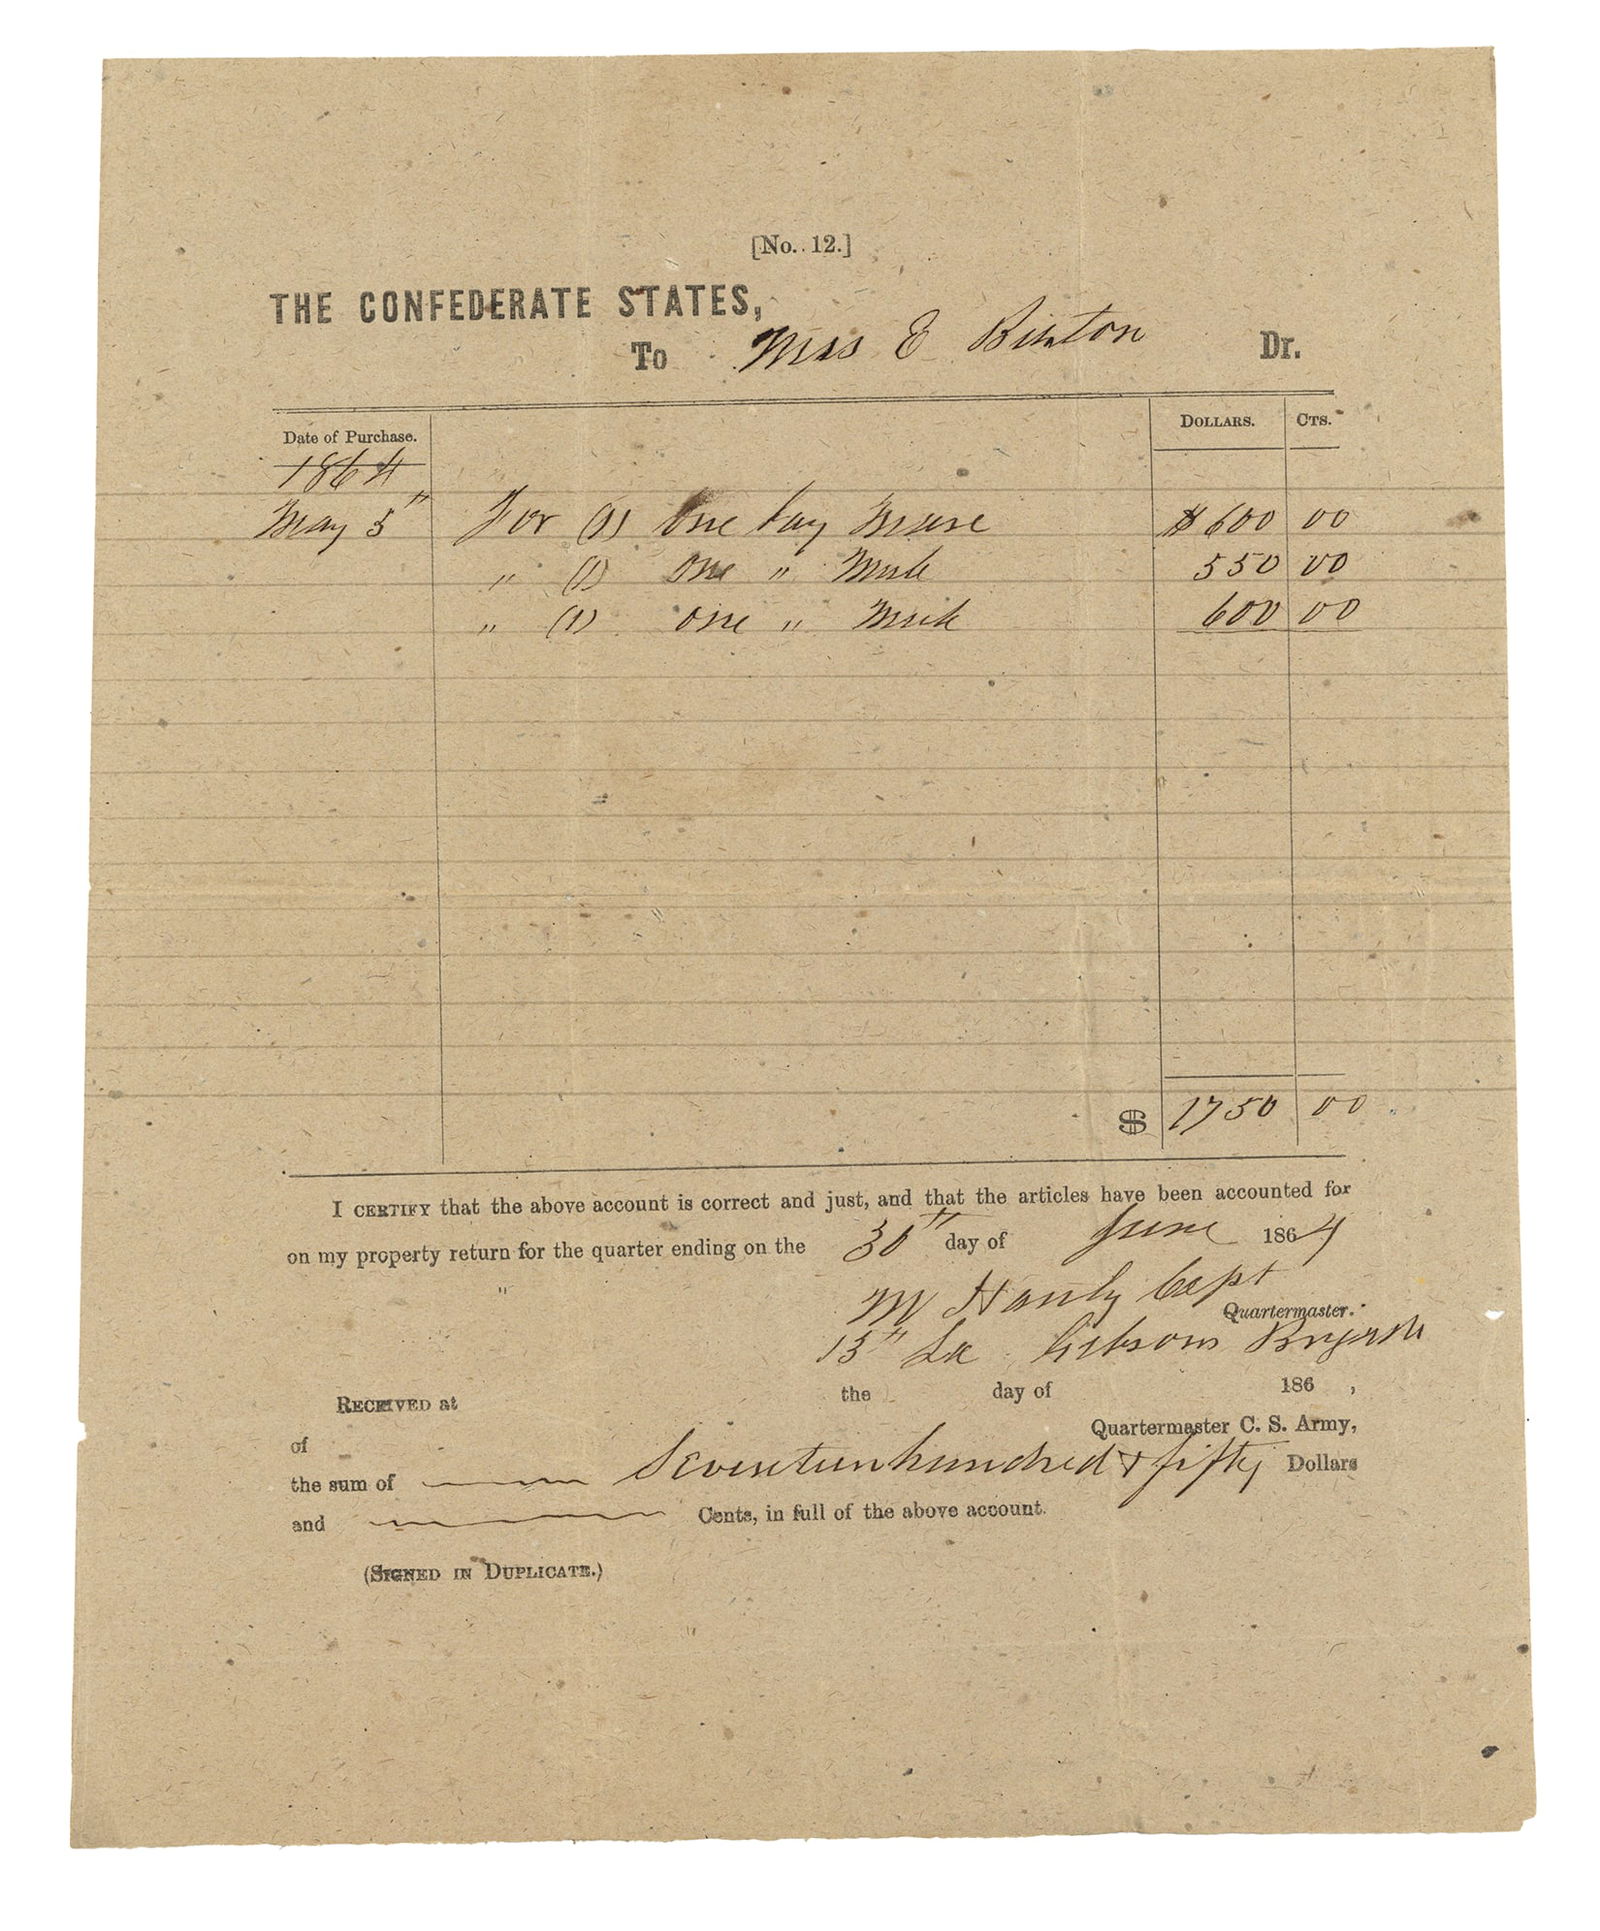 [No. 12.]
THE CONFEDERATE STATES,
To Mrs E Dr.
Date of Purchase. DOLLARS. CTS.
1864
May 5" For (1) One bay Mare $ 600 00
" (1) one " Mule 550 00
" (1) one " Mule 600 00
$ 1750 00
I CERTIFY that the above account is correct and just, and that the articles have been accounted for
on my property return for the quarter ending on the 30" day of June 1864
M Hanly Capt
Quartermaster.
13" La Gibsons Brigade
RECEIVED at the day of 186 ,
of Quartermaster C. S. Army,
the sum of Seventeen hundred & fifty Dollars
and Cents, in full of the above account.
(SIGNED IN DUPLICATE.)